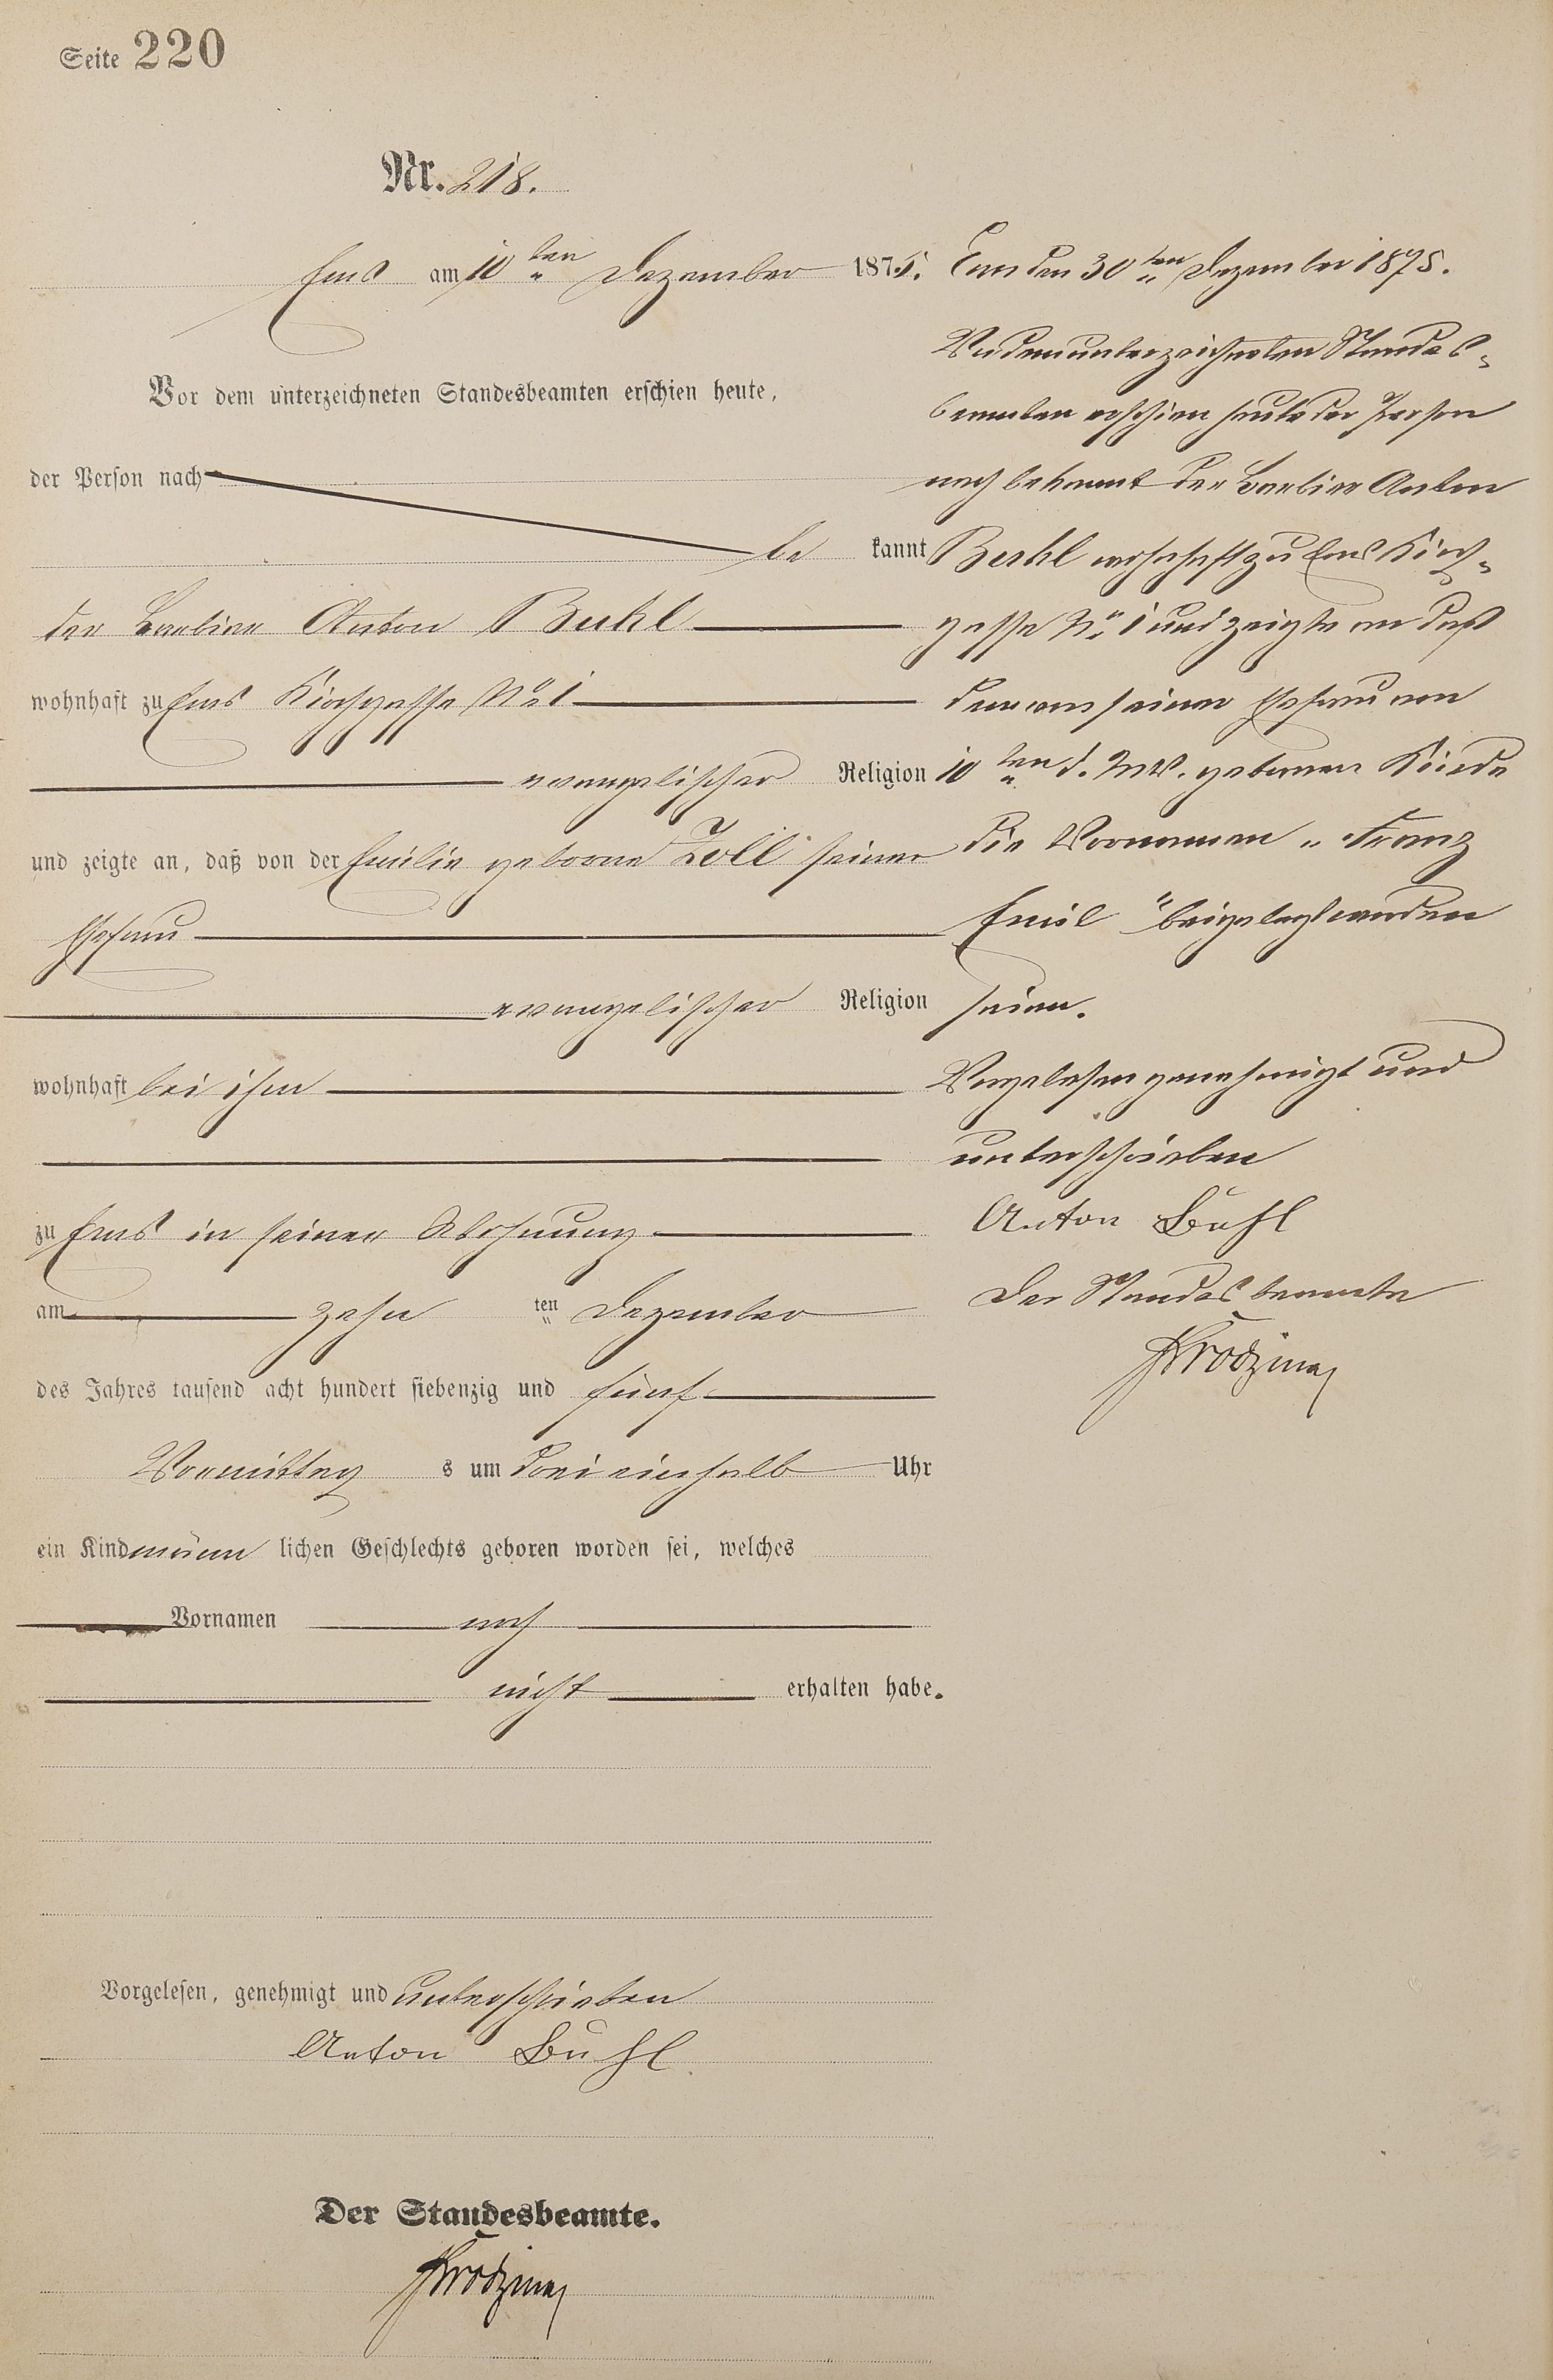 Seite 220
Nr. 218.
Ems am 10ten Dezember 1875.
Vor dem unterzeichneten Standesbeamten erschien heute,
der Person nach
be kannt
der Barbier Anton Buhl
wohnhaft zu Ems Kirchgasse No 1
evangelischer Religion
und zeigte an, daß von der Emilie geborne Zoll seiner
Ehefrau
evangelischer Religion
wohnhaft bei ihm
zu Ems in seiner Wohnung
am zehn ten Dezember
des Jahres tausend acht hundert siebenzig und fünf
Vormittag s um drei einhalb Uhr
ein Kind männ lichen Geschlechts geboren worden sei, welches
Vornamen noch
nicht erhalten habe.
Vorgelesen, genehmigt und unterschrieben
Anton Buhl
Der Standesbeamte.
Ems den 30ten Dezember 1875.
Vor dem unterzeichneten Standes-
beamten erschien heute der Person
nach bekannt der Barbier Anton
Buhl wohnhaft zu Ems Kirch-
gasse No 1 und zeigte an daß
dem von seiner Ehefrau am
10ten d. Mts. gebornen Kinde
die Vornamen „Franz
Emil“ beigelegt worden
seien.
Vorgelesen genehmigt und
unterschrieben
Anton Buhl
Der Standesbeamte